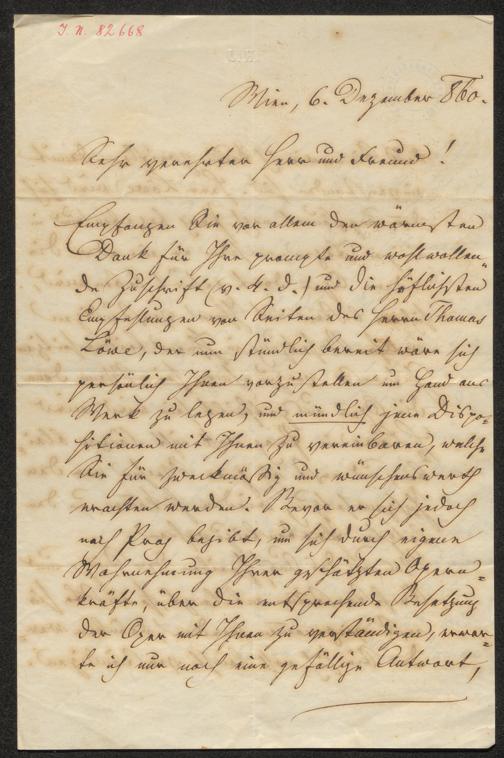 J. N. 82668
Wien, 6. Dezember 860.
Sehr verehrter Herr und Freund!
Empfangen Sie vor allem den wärmsten
Dank für Ihre prompte und wohlwollen-
de Zuschrift (v. 4. d.) und die höflichsten
Empfehlungen von Seiten des Herrn Thomas
Löwe, der nun stündlich bereit wäre sich
persönlich Ihnen vorzustellen um Hand ans
Werk zu legen, und mündlich jene Dispo-
sitionen mit Ihnen zu vereinbaren, welche
Sie für zweckmässig und wünschenswerth
erachten werden. Bevor er sich jedoch
nach Prag begibt, um sich durch eigene
Wahrnehmung Ihrer geschätzten Opern-
kräfte, über die entsprechende Besetzung
der Oper mit Ihnen zu verständigen, erwar-
te ich nur noch eine gefällige Antwort,